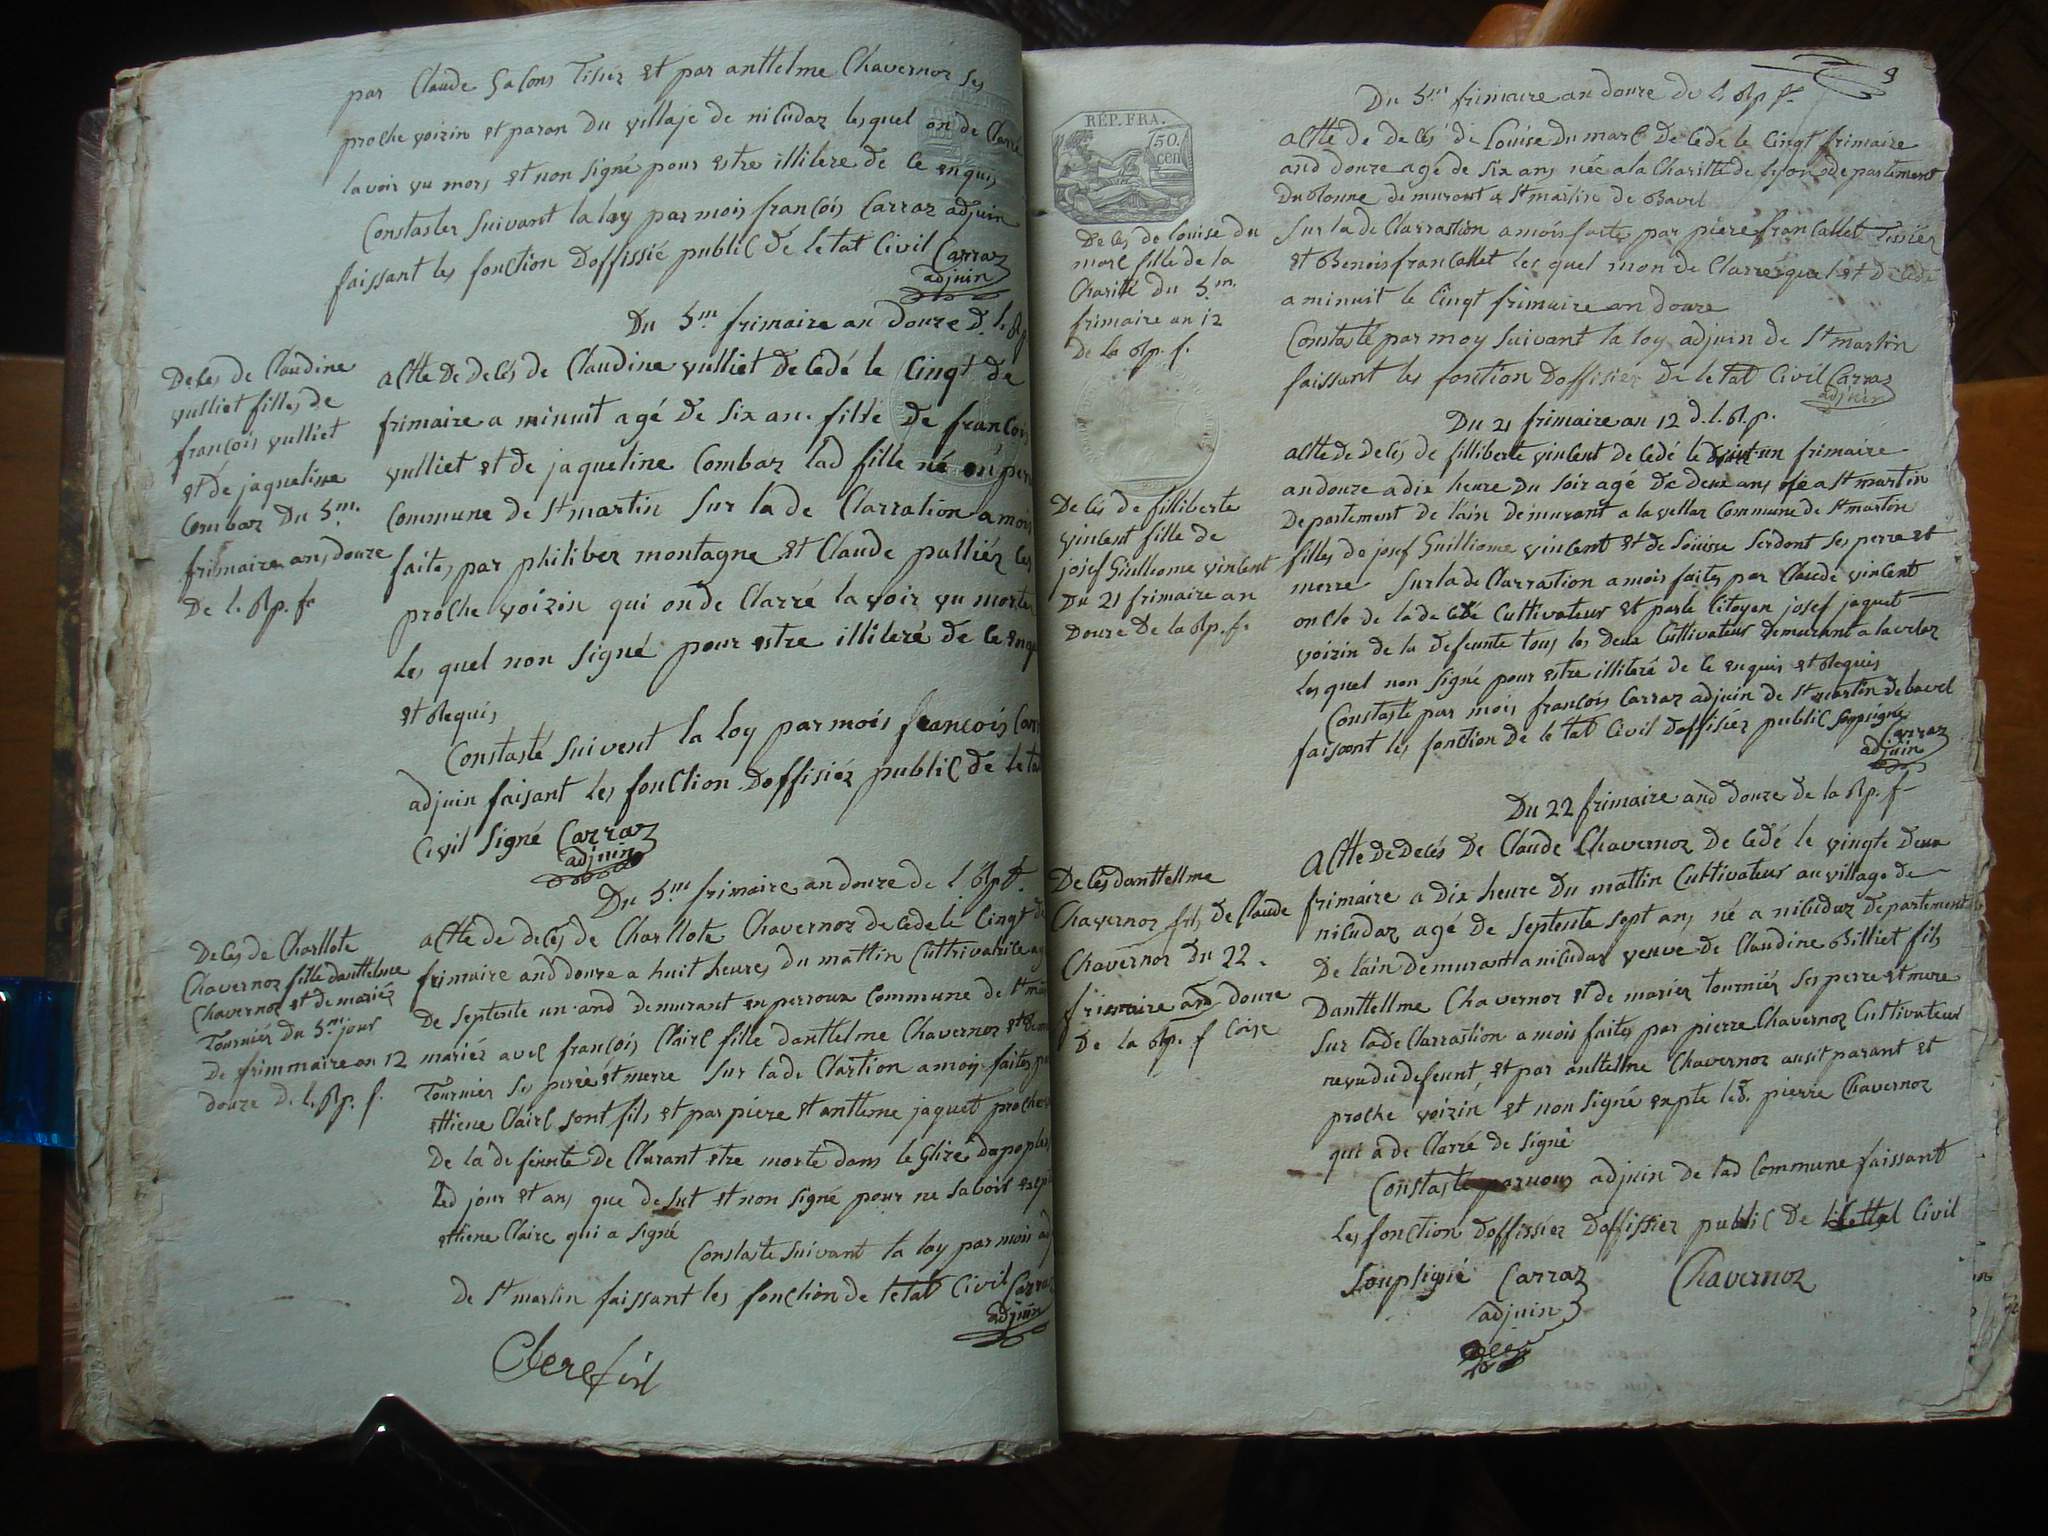 par Claude Galons Tisiez et par anttelme Chavernoz ses
proche voizin et paran du villaje de niludaz lesquel on de Clarré
lavoir vu mors et non signé pour estre illitere de ce enquis
Constaster suivant la loy par mois françois Carraz adjuin
faissant les fonction doffissié public de letat Civil Carraz
adjuin
Du 5.m frimaire an douze d. l. Rp
Deces de Claudine
vulliet filles de
françois vulliet
et de jaqueline
Combaz Du 5.m.
frimaire an douze
De l. Rp. f.
actte de decés de Claudine vulliet decedé le Cinqt de
frimaire a minuit agé de six an. fille de françois
vulliet et de jaqueline Combaz lad fille né en per
Commune de St martin sur la de Clarration a mois
faites par philiber montagne et Claude pulliéz les
proche voizin qui on de Clarré lavoir vu morte
les quel non signé pour estre illiteré de ce enqu
et Requis
Constasté suivent la loy par mois françois Carr
adjuin faisant les fonction doffisiéz public de leta
Civil signé Carraz
adjuin
Du 5.m frimaire an douze de l Rp f.
Deces de Charllote
Chavernoz fille danttelme
Chavernoz et de mariéz
Tourniéz du 5.m jour
De frimmaire an 12
douze d. l. Rp. f.
actte de decés de Charllote Chavernoz decedé le Cinqt de
frimaire and douze a huit heures du mattin Culttivatrice ag
de septente un and demurant en perroux commune de St mar
mariéz avec françois Clairc fille danttelme Chavernoz et de m
Tourniéz ses perre et merre sur la de Clartion a moy faites p
ettiene Clairc sont fils et par piere et anttleme jaquet proche v
de la defeunte de Clarant etre morte dans le Glize dapoplex
led jour et ans que desut et non signé pour ne savoir exept
ettiene Clairc qui a signé
Constaste suivant la loy par mois ad
de St martin faissant les fonction de letat Civil Carraz
adjuin
Clerc fisl
9
Du 5.m frimaire an douze de l Rp f.
RÉP. FRA.
50.
cen
Deces de louise du
marc fille de la
Charité du 5.m.
frimaire an 12
de la Rp. f.
actte de decés de Louise du marc decedé le Cinqt frimaire
and douze agé de six ans née a la Charitté de lyon departement
du Ronne demurant a St martin de Bavel
sur la de Clarrastion a mois faites par piere francallet Tissiéz
et Benois francallet les quel mon de Clarré quel et decedé
a minuit le Cinqt frimaire an douze
Constasté par moy suivant la loy adjuin de St martin
faissant les fonstion doffisiez de letat Civil Carraz
adjuin
Du 21 frimaire an 12 d. l. R. p.
Decés de filliberte
vincent fille de
josef Guilliome vincent
Du 21 frimaire an
Douze De la Rp. f.
actte de decés de filliberte vincent decedé le vint un frimaire
an douze a dix heure du soir agé de deux ans né a St martin
departement de lain demurant a la vellaz Commune de St martin
filles de josef Guilliome vincent et de Louise serdont ses perre et
merre sur la de Clarrastion a mois faites par Claude vincent
oncle de la decedé Culttivateur et par le Citoyen josef jaquet
voizin de la defeunte tous les deux Culttivateur demurant a la velaz
les quel non signé pour estre illiteré de ce enquis et Requis
Constaste par mois françois Carraz adjuin de St martin de bavel
faisant les fonction de letat Civil doffisiéz public soupsigné
Carraz
adjuin
Du 22 frimaire and douze de la Rp. f
Decés danttellme
Chavernoz fils de Claude
Chavernoz du 22.
frimaire and douze
de la Rp. f
actte de decés de Claude Chavernoz decedé le vingte deux
frimaire a dix heure du mattin Culttivateur au village de
niludaz agé de septente sept ans né a niludaz departement
de lain demurant a niludaz veuve de Claudine Billiet fils
danttellme Chavernoz et de mariez tourniéz ses perre et mere
sur la de Clarrastion a mois faites par pierre Chavernoz Cultivateur
nevu du defeunt et par anttelme Chavernoz ausit parant et
proche voizin et non signé expte led. pierre Chavernoz
qui a de Clarré de signé
Constaste par nous adjuin de lad Commune faissant
les fonction doffissiéz doffissiez public de lettat Civil
soupsigné Carraz Chavernoz
adjuin